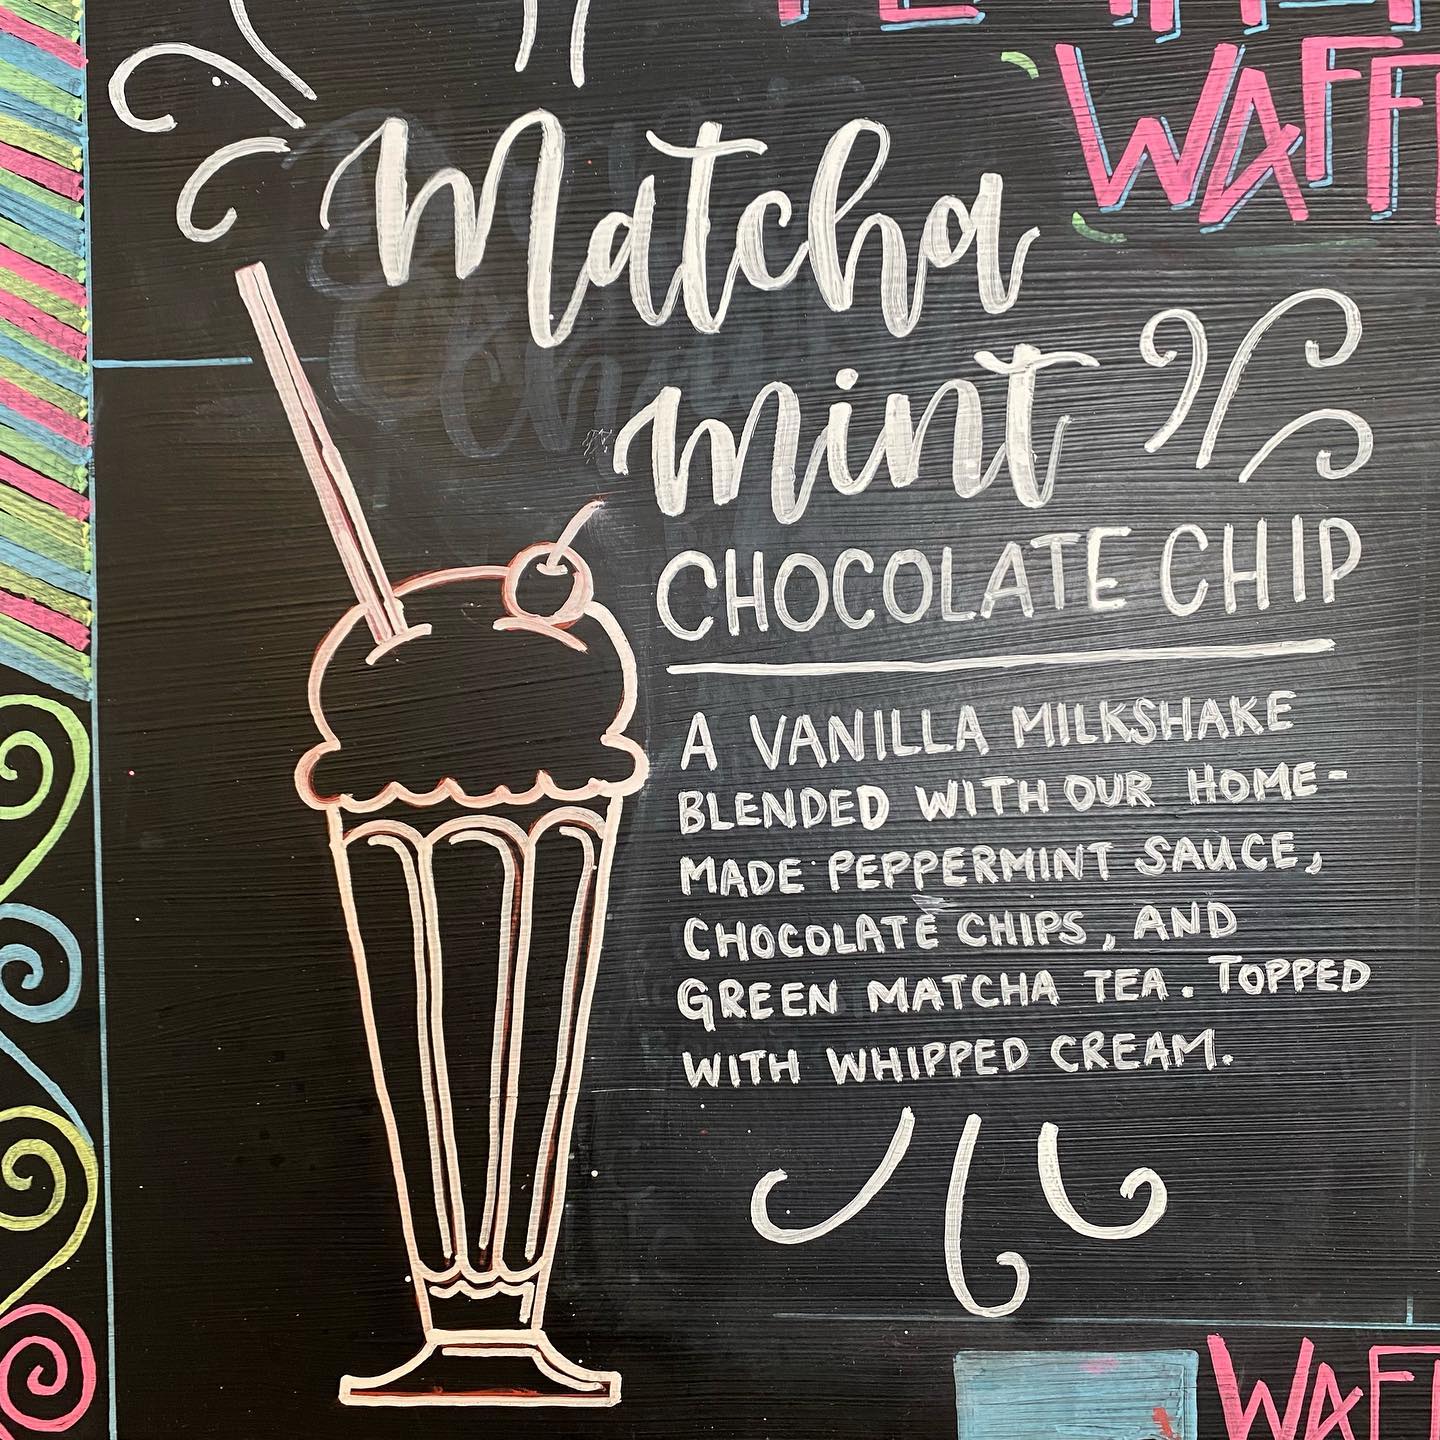 WAFF
Matcha
mint
CHOCOLATE CHIP
A VANILLA MILKSHAKE
BLENDED WITH OUR HOME-
MADE PEPPERMINT SAUCE,
CHOCOLATE CHIPS, AND
GREEN MATCHA TEA. TOPPED
WITH WHIPPED CREAM.
WAFF